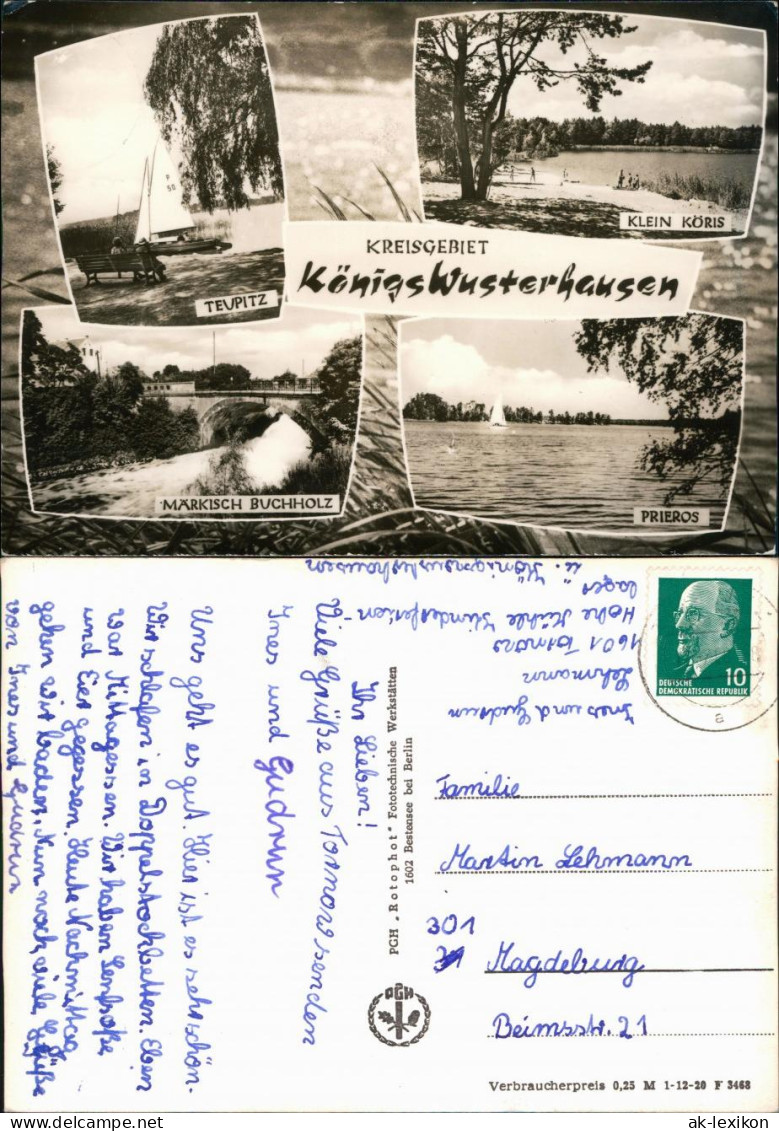 P
58
TEUPITZ
KLEIN KÖRIS
KREISGEBIET
KönigsWusterhausen
MÄRKISCH BUCHHOLZ
PRIEROS
Ihr Lieben!
Viele Grüße aus Tornow senden
Ines und Gudrun
Uns geht es gut. Hier ist es sehr schön.
Wir schlafen in Doppelstockbetten. Eben
war Mittagessen. Wir haben Senfsoße
und Eier gegessen. Heute Nachmittag
gehen wir baden. Nun noch viele Grüße
von Ines und Gudrun
Ines und Gudrun
Lehmann
1601 Tornow
Hohe Mühle Kinderferien-
lager
Königswusterhausen
DEUTSCHE
DEMOKRATISCHE REPUBLIK
10
a
PGH „Rotophot" Fototechnische Werkstätten
1602 Bestensee bei Berlin
PGH
Familie
Martin Lehmann
301
Magdeburg
Beimsstr. 21
Verbraucherpreis 0,25 M 1-12-20 F 3468
www.ak-ansichtskarten.de
ak-lexikon